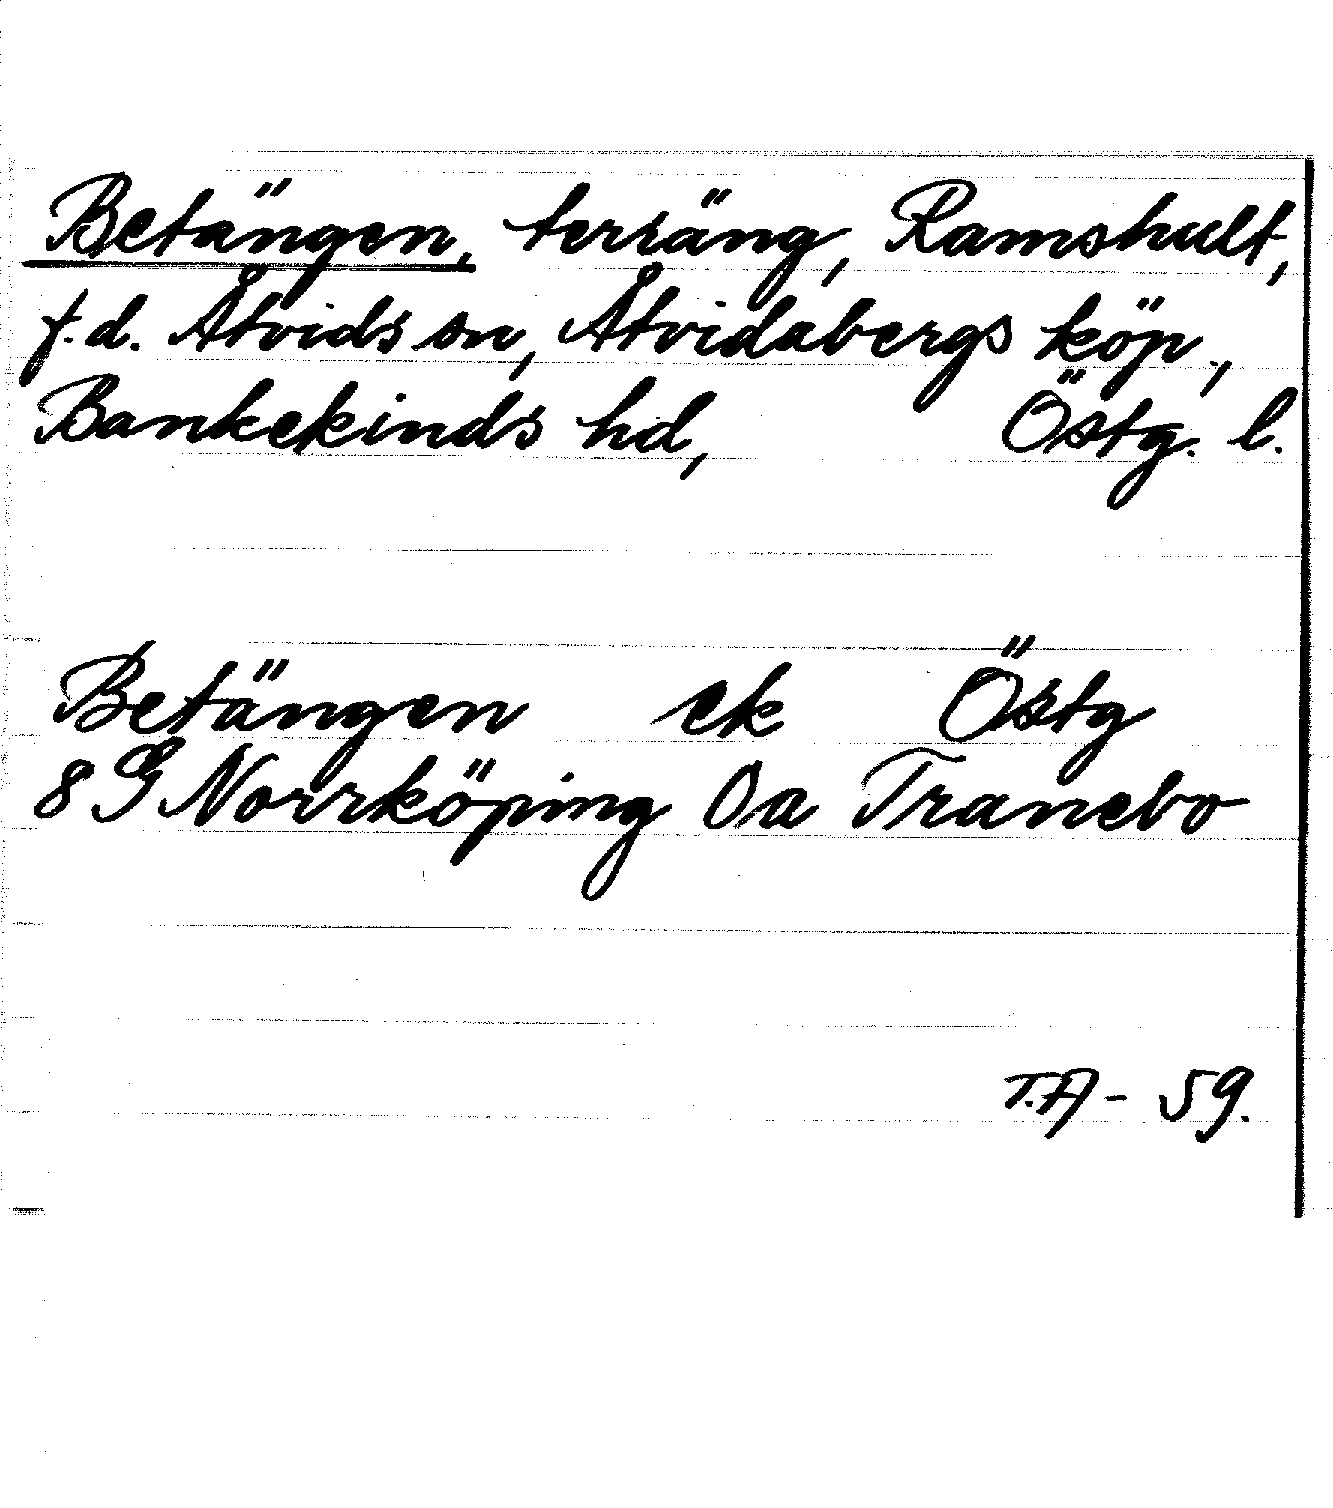 Betängen, terräng, Ramshult,
f.d. Åtvids sn, Åtvidabergs köp.,
Bankekinds hd, Östg. l.
Betängen ek Östg
8 G Norrköping 0a Tranebo
T.A - 59.